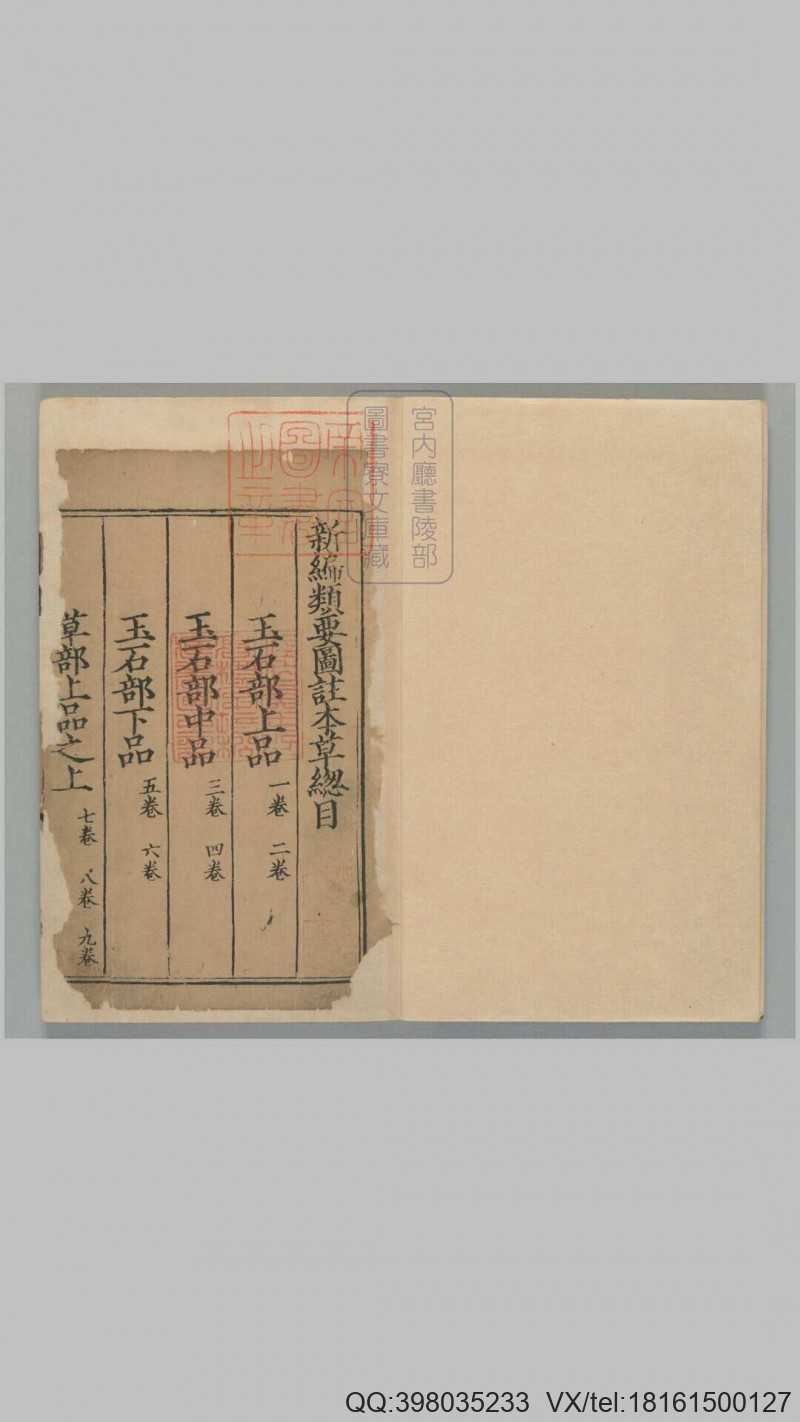 宮内廳書陵部
圖書寮文庫藏
新編類要圖註本草總目
玉石部上品 一卷 二卷
玉石部中品 三卷 四卷
玉石部下品 五卷 六卷
草部上品之上 七卷 八卷 九卷
QQ:398035233 VX/tel:18161500127